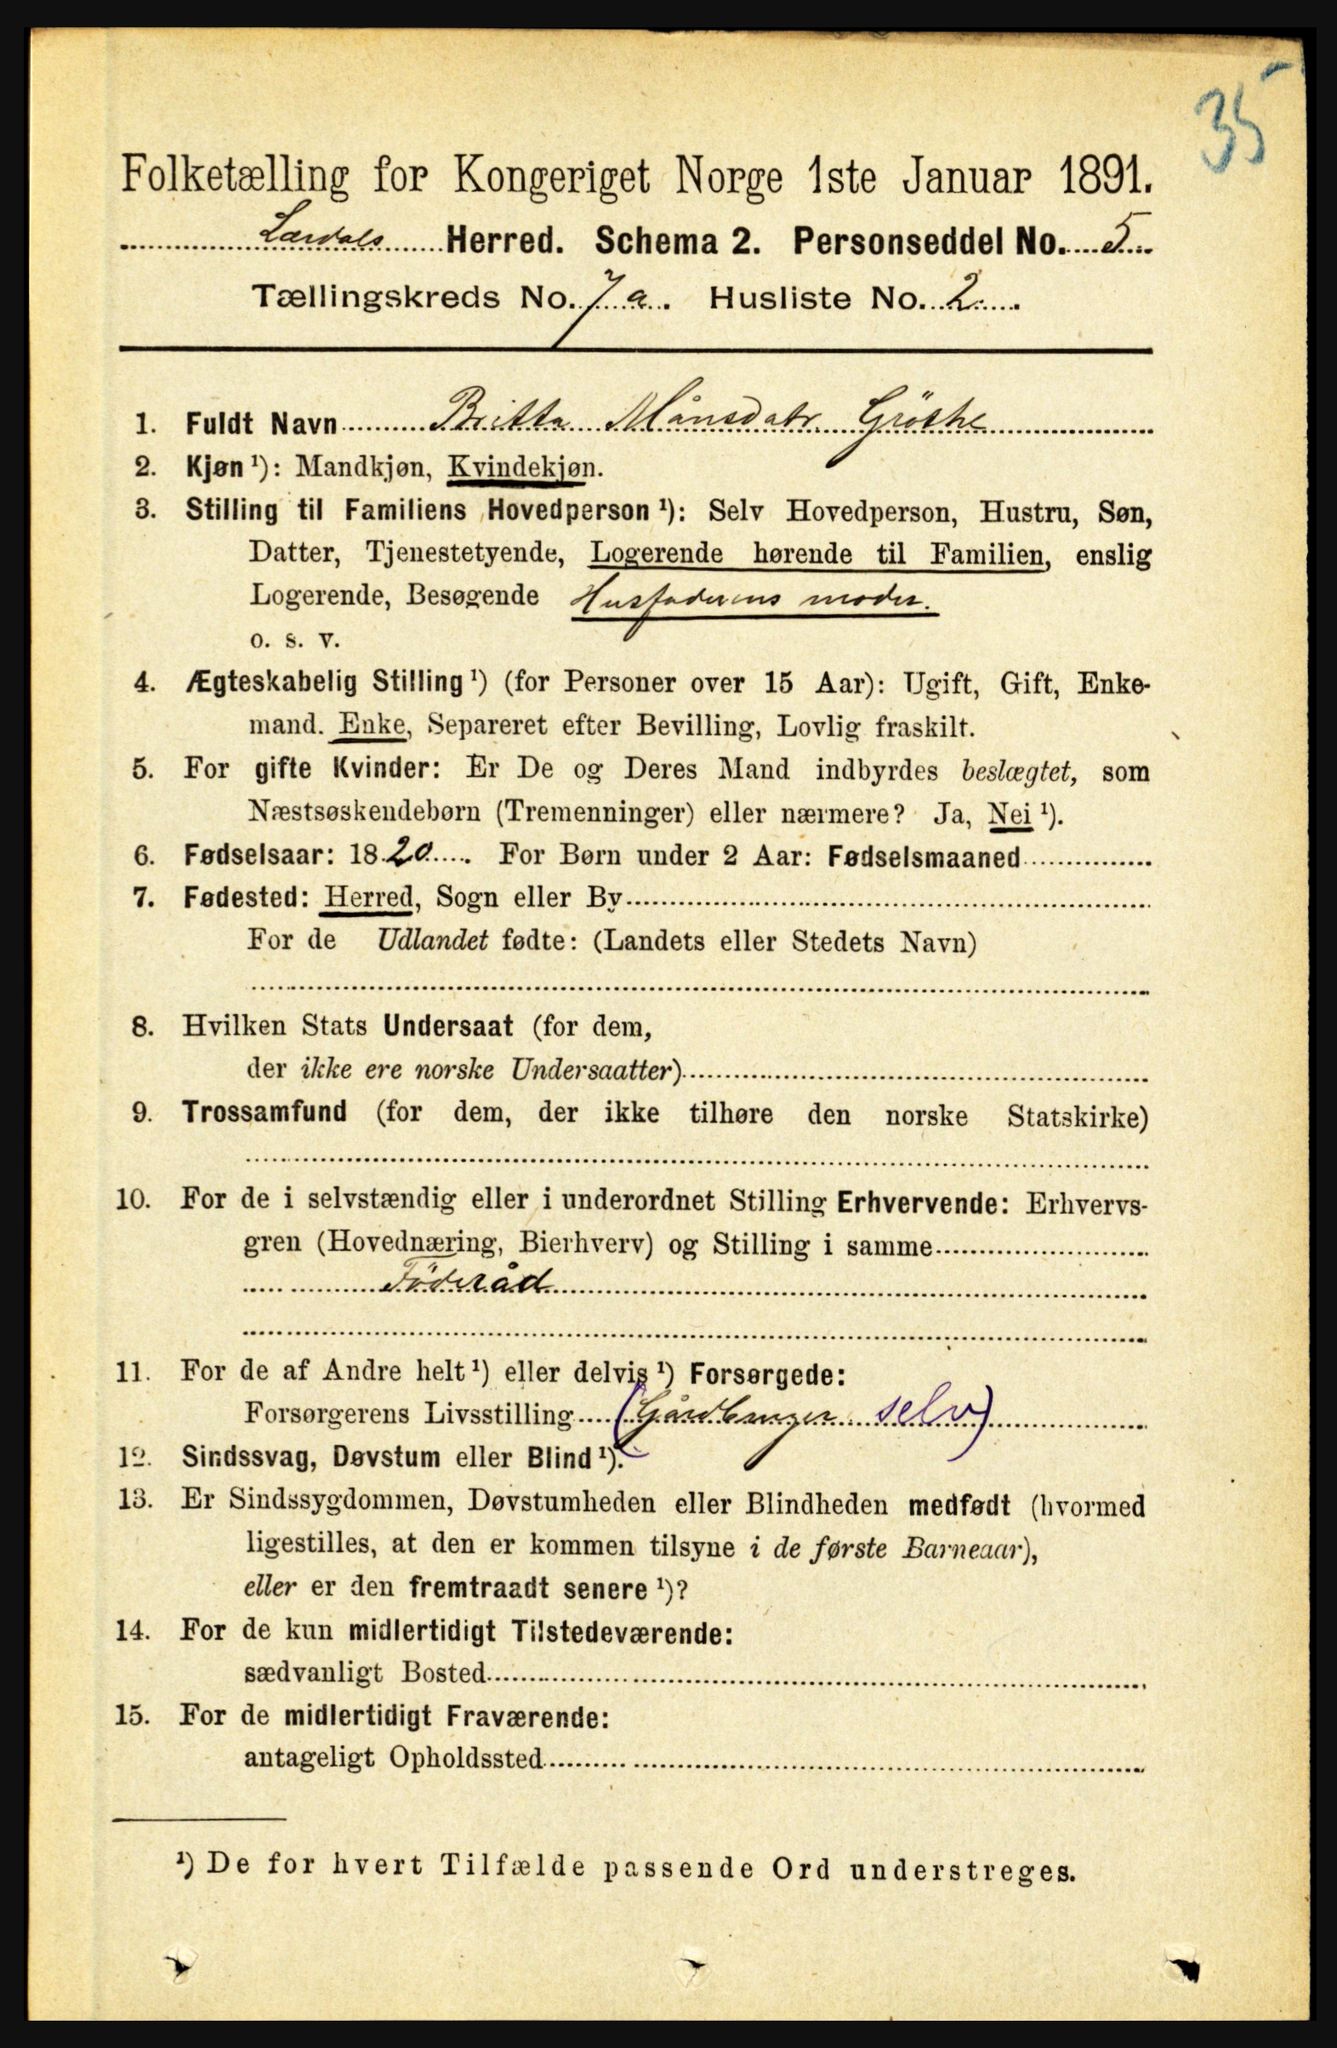 35
Folketælling for Kongeriget Norge 1ste Januar 1891.
Lærdals Herred. Schema 2. Personseddel No. 5
Tællingskreds No. 7 a. Husliste No. 2
1. Fuldt Navn Britta Månsdatr. Gröthe
2. Kjøn ¹): Mandkjøn, Kvindekjøn.
3. Stilling til Familiens Hovedperson ¹): Selv Hovedperson, Hustru, Søn,
Datter, Tjenestetyende, Logerende hørende til Familien, enslig
Logerende, Besøgende Husfaderens moder.
o. s. v.
4. Ægteskabelig Stilling ¹) (for Personer over 15 Aar): Ugift, Gift, Enke-
mand. Enke, Separeret efter Bevilling, Lovlig fraskilt.
5. For gifte Kvinder: Er De og Deres Mand indbyrdes beslægtet, som
Næstsøskendebørn (Tremenninger) eller nærmere? Ja, Nei ¹).
6. Fødselsaar: 1820. For Børn under 2 Aar: Fødselsmaaned
7. Fødested: Herred, Sogn eller By
For de Udlandet fødte: (Landets eller Stedets Navn)
8. Hvilken Stats Undersaat (for dem,
der ikke ere norske Undersaatter)
9. Trossamfund (for dem, der ikke tilhøre den norske Statskirke)
10. For de i selvstændig eller i underordnet Stilling Erhvervende: Erhvervs-
gren (Hovednæring, Bierhverv) og Stilling i samme
Föderåd
11. For de af Andre helt ¹) eller delvis ¹) Forsørgede:
Forsørgerens Livsstilling (Gårdbruger selv)
12. Sindssvag, Døvstum eller Blind ¹).
13. Er Sindssygdommen, Døvstumheden eller Blindheden medfødt (hvormed
ligestilles, at den er kommen tilsyne i de første Barneaar),
eller er den fremtraadt senere ¹)?
14. For de kun midlertidigt Tilstedeværende:
sædvanligt Bosted
15. For de midlertidigt Fraværende:
antageligt Opholdssted
¹) De for hvert Tilfælde passende Ord understreges.